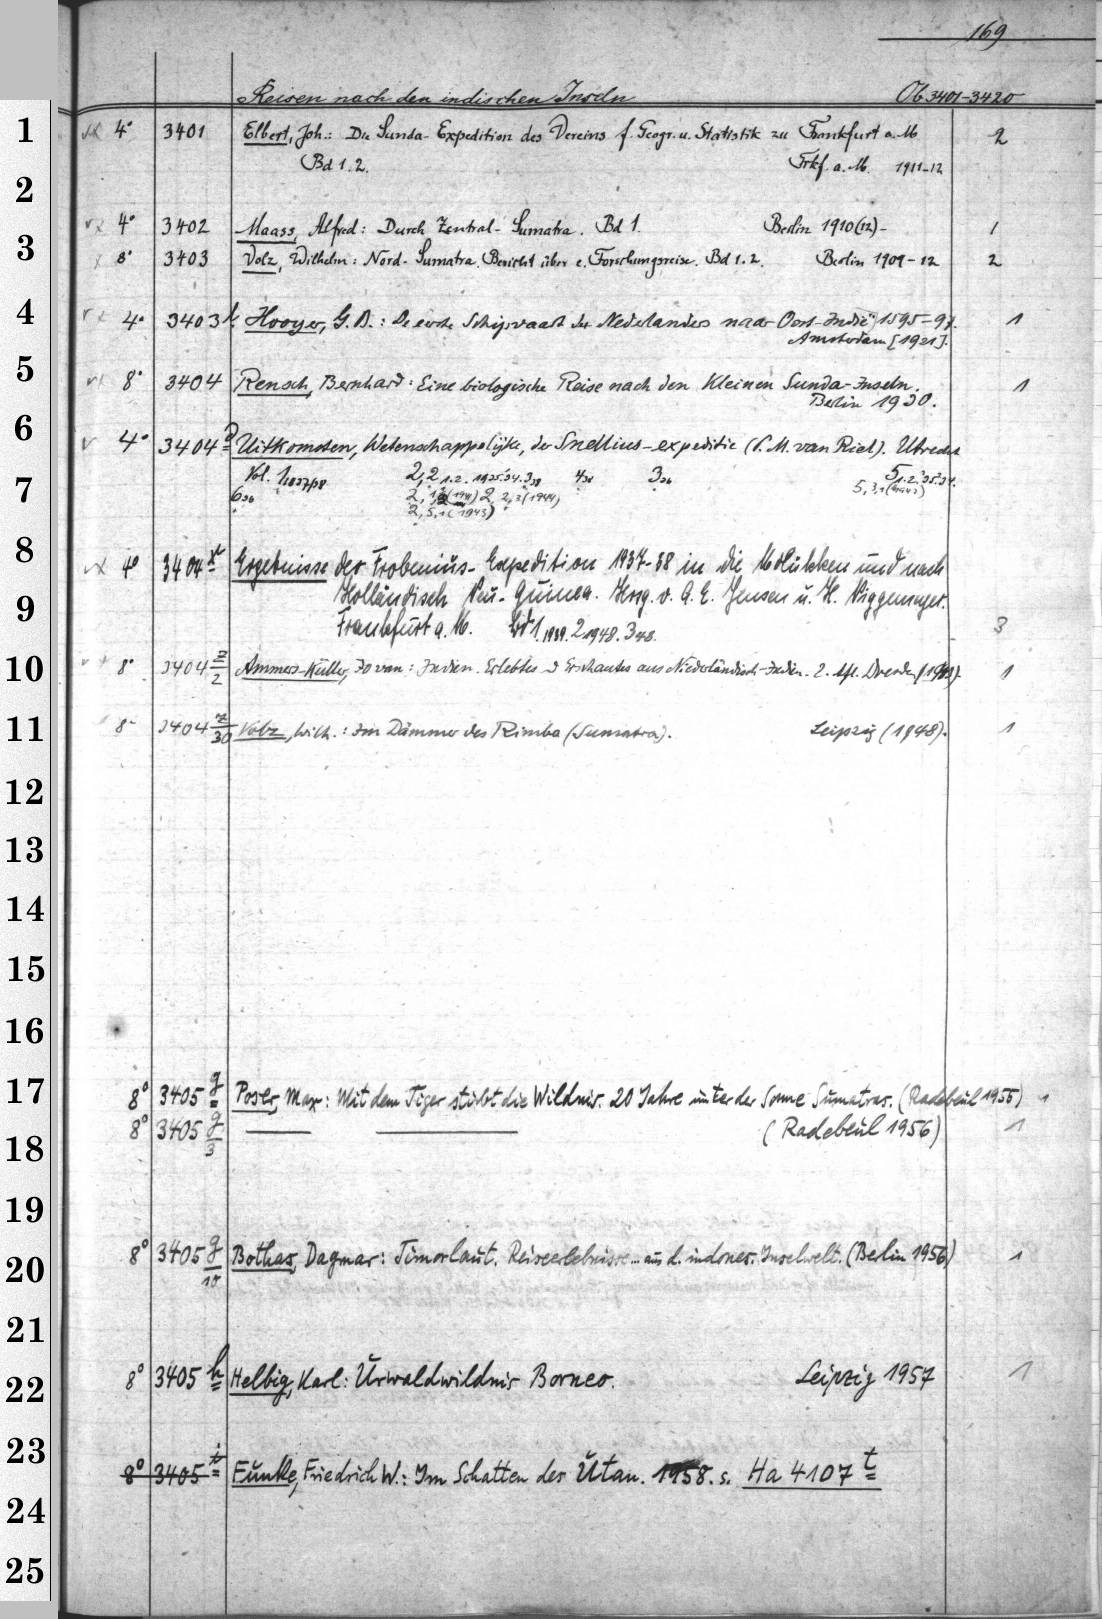 169
Reisen nach den indischen Inseln Ob 3401-3420
1 4° 3401 Elbert, Joh.: Die Sunda-Expedition des Vereins f. Geogr. u. Statistik zu Frankfurt a. M. 2
Bd 1.2. Frkf. a. M. 1911-12
2
4° 3402 Maass, Alfred: Durch Zentral-Sumatra. Bd 1. Berlin 1910(12)- 1
3 8° 3403 Volz, Wilhelm: Nord-Sumatra. Bericht über e. Forschungsreise. Bd 1.2. Berlin 1909-12 2
4 4° 3403 Hooyer, G. B.: De eerste Schipvaart der Nederlanders naar Oost-Indië, 1595-97. 1
Amsterdam [1921].
5 8° 3404 Rensch, Bernhard: Eine biologische Reise nach den Kleinen Sunda-Inseln. 1
Berlin 1930.
6 4° 3404 Uitkomsten, Wetenschappelijke, der Snellius-expeditie (P. M. van Riel). Utrecht
7 Vol. 1. 1937/38 2,2 1.2. 1935.34. 3 38 4 38 3 36 5 1.2. 35.34.
6 36 2, (1941) 2, 2, 3 (1944)
2, 5, 1 (1943)
8 4° 3404 Ergebnisse der Frobenius-Expedition 1937-38 in die Molukken und nach
9 Holländisch Neu-Guinea. Hrsg. v. A. E. Jensen u. H. Niggemeyer.
Frankfurt a. M. Bd 1. 1939. 2 1948. 3 48. 3
10 8° 3404 z/2 Ammers-Küller, Jo van: Indien. Erlebtes u. Erschautes aus Niederländisch-Indien. 2. Afl. Dresden 1
11 8° 3404 z/30 Volz, Wilh.: Im Dämmer des Rimba (Sumatra). Leipzig (1948). 1
12
13
14
15
16
17 8° 3405 g Poser, Max: Mit dem Tiger stirbt die Wildnis. 20 Jahre unter der Sonne Sumatras. (Radebeul 1955) 1
8° 3405 g/3 —— —— (Radebeul 1956) 1
18
19
20 8° 3405 g/10 Bothas, Dagmar: Timorlaut. Reiseerlebnisse ... aus d. indones. Inselwelt. (Berlin 1956) 1
21
22 8° 3405 h Helbig, Karl: Urwaldwildnis Borneo. Leipzig 1957 1
23
8° 3405 i Funke, Friedrich W.: Im Schatten des Utan. 1958. s. Ha 4107 t
24
25